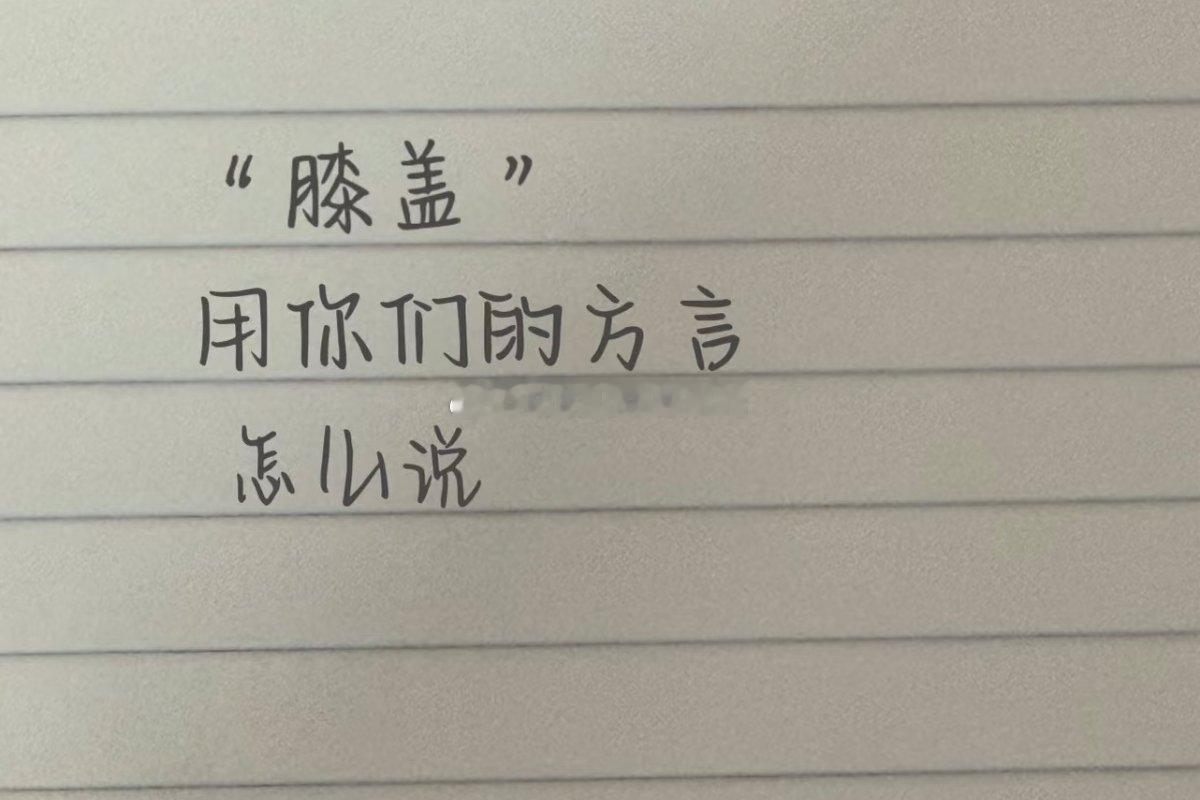 “膝盖”
用你们的方言
怎么说